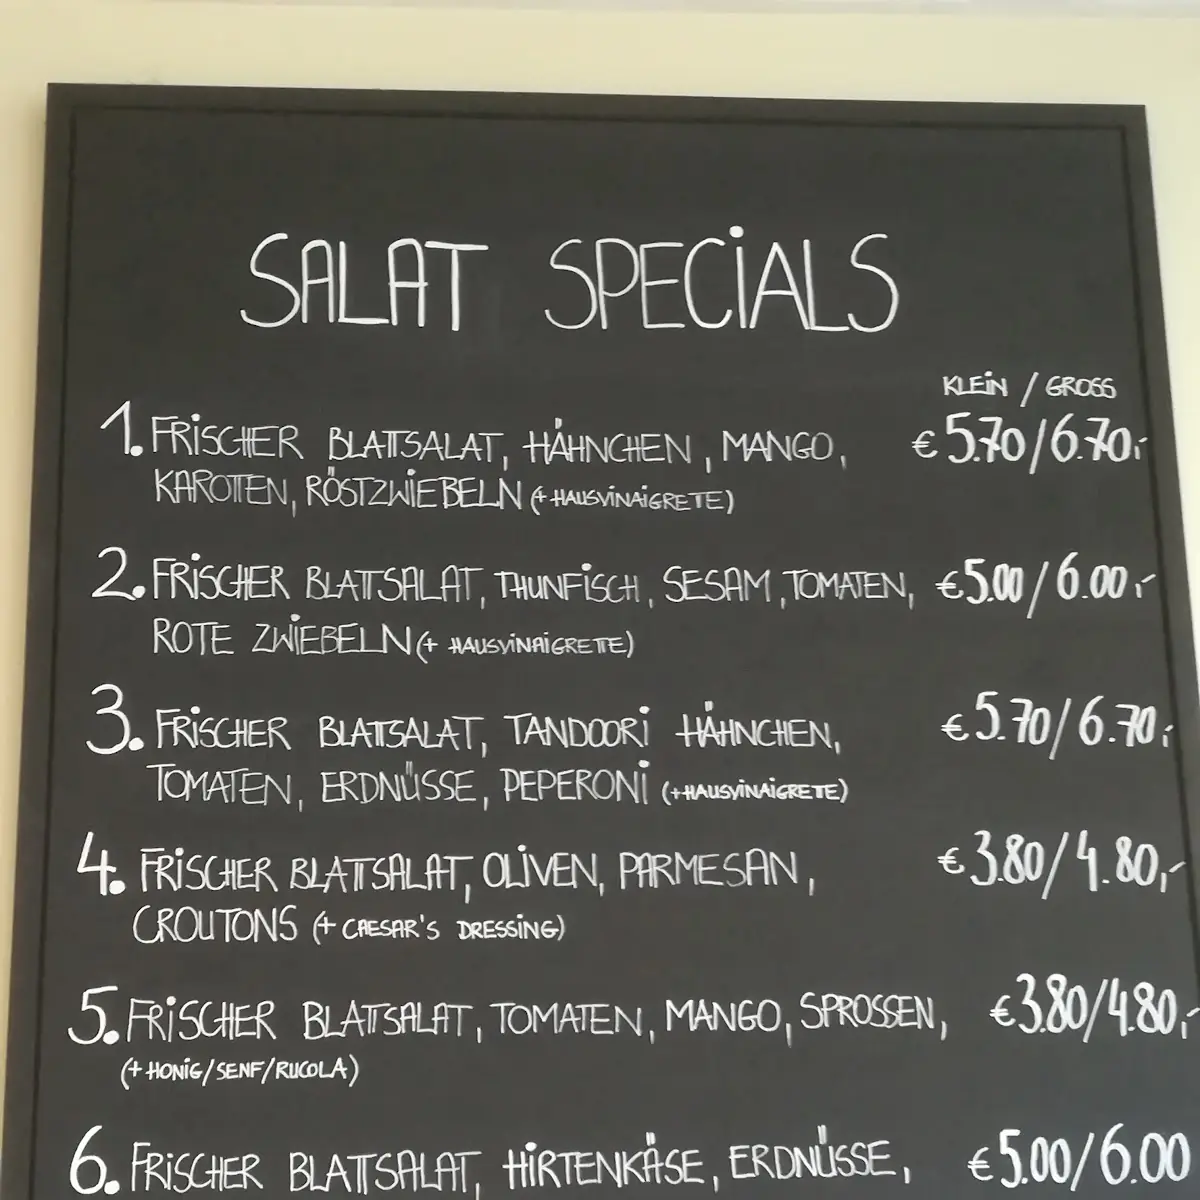 SALAT SPECIALS
KLEIN / GROSS
1. FRISCHER BLATTSALAT, HÄHNCHEN, MANGO, € 5.70/6.70,-
KAROTTEN, RÖSTZWIEBELN (+ HAUSVINAIGRETE)
2. FRISCHER BLATTSALAT, THUNFISCH, SESAM, TOMATEN, € 5.00/6.00,-
ROTE ZWIEBELN (+ HAUSVINAIGRETTE)
3. FRISCHER BLATTSALAT, TANDOORI HÄHNCHEN, € 5.70/6.70,-
TOMATEN, ERDNÜSSE, PEPERONI (+ HAUSVINAIGRETE)
4. FRISCHER BLATTSALAT, OLIVEN, PARMESAN, € 3.80/4.80,-
CROUTONS (+ CAESAR'S DRESSING)
5. FRISCHER BLATTSALAT, TOMATEN, MANGO, SPROSSEN, € 3.80/4.80,-
(+ HONIG/SENF/RUCOLA)
6. FRISCHER BLATTSALAT, HIRTENKÄSE, ERDNÜSSE, € 5.00/6.00